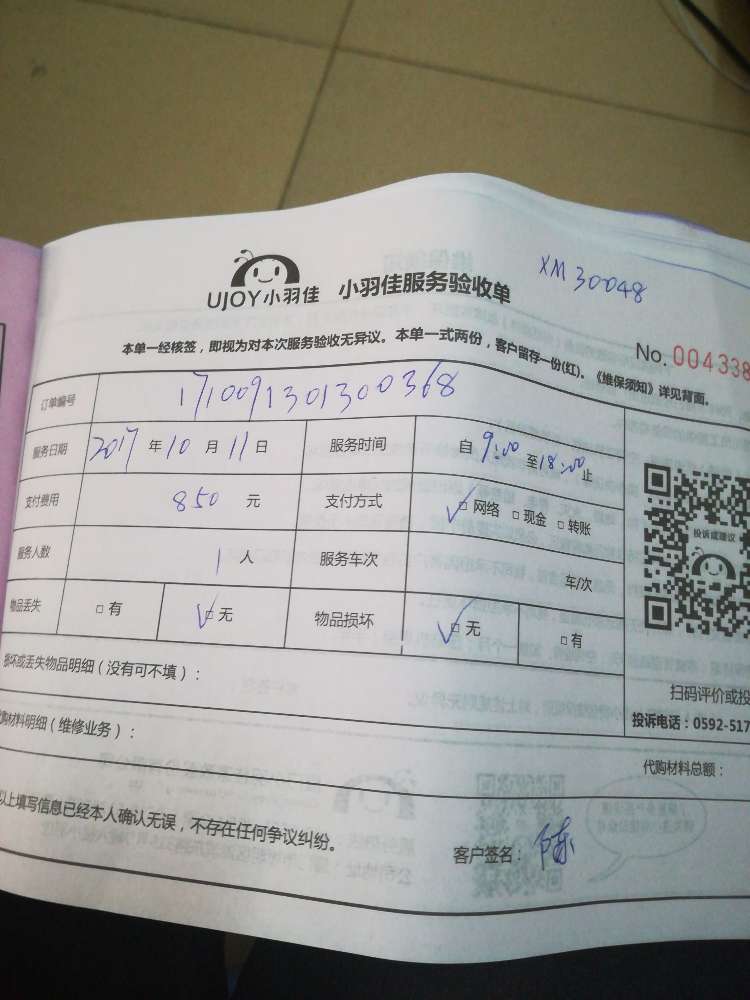 XM30048
UJOY小羽佳 小羽佳服务验收单
No. 004338
本单一经核签，即视为对本次服务验收无异议。本单一式两份，客户留存一份(红)。《维保须知》详见背面。
订单编号 1710091301300368
服务日期 2017 年 10 月 11 日 服务时间 自 9:00 至 18:00 止
支付费用 850 元 支付方式 ✓□ 网络 □ 现金 □ 转账
服务人数 1 人 服务车次 车/次
物品丢失 □ 有 ✓□ 无 物品损坏 ✓□ 无 □ 有
投诉或建议
损坏或丢失物品明细（没有可不填）：
扫码评价或投
投诉电话：0592-517
购材料明细（维修业务）：
代购材料总额：
以上填写信息已经本人确认无误，不存在任何争议纠纷。
客户签名：陈